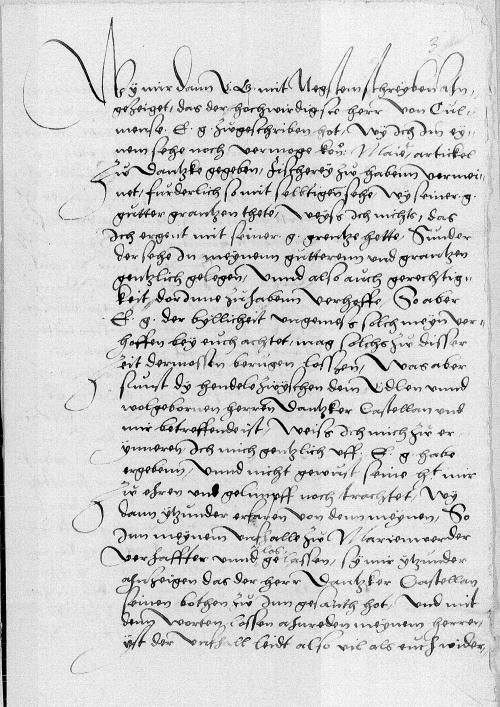 3
Wy mir dann E. G. mit Negstem schreyben An-
gezeiget, das der hochwirdigste herr von Cul-
mensee E. g. zugeschriben hot, wy ich In ey-
nem sehe noch vermoge kon: Maie: artickel
zw Dantzke gegeben, fischerey zw habenn vermei-
net, furderlich so mit selbtigen sehe, wy seiner g.
gutter grantzen thete, Weyss ich nichts, das
ich ergent mit seiner g. grentze hette, Sunder
der sehe In meynenn gutterenn und grantzen
gentzlich gelegen, Vnnd also auch gerechtig-
keit dorInne zu habenn verhoffe, So aber
E. g. der byllicheit vngemess solch meyn ver-
hoffen bey euch achtet, mag solchs zw disser
Zeit dermossen berugen lossen, Was aber
sunst dy hendele zwyschen dem Edlen vnnd
wolgebornen herren Dantzker Castellan vnd
mir betreffende ist, Weiss ich mich zw er-
ynneren, ich mich gentzlich vff E. g. habe
ergebenn, Vnnd nicht gewust seine h. mir
zw ehren und gelimpff noch trachtet, Wy
dann ytzunder erfaren von dem meynen, So
Inn meynem vnfhalle zw Marienwerder
verhaffter vnnd gelassen, sy mir ytzunder
ahnzeigen das der herr Dantzker Castellan
seinen bothen zw Inn gesanth hot, Vnd mit
denn worten lossen ahnreden meynem herren
yst der vnfhall leidt also vil als euch wider,